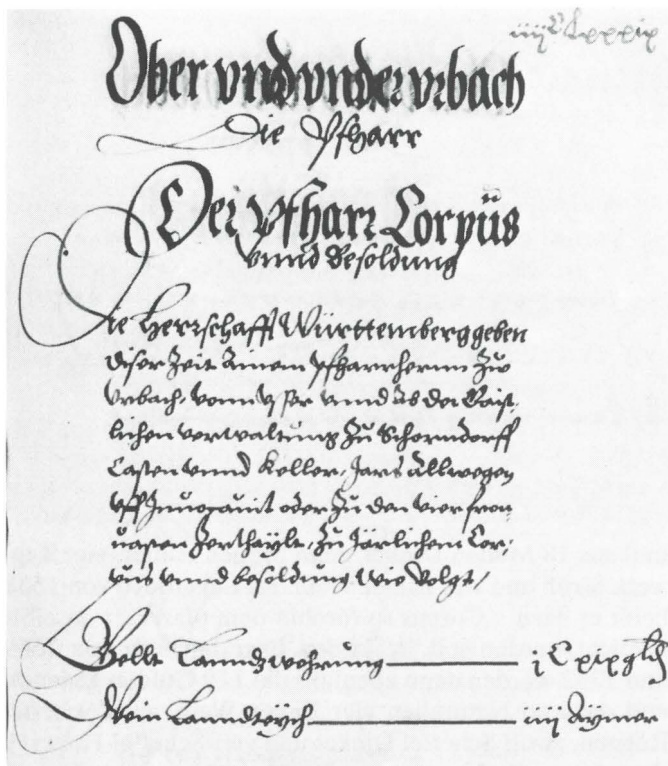 iiijC Lxxxix
Ober vnd vnder vrbach
die Pfharr
Der Pfharr Corpus
vnnd Besoldung
Die Herrschafft Württemberg geben
diser Zeit Ainem Pfharrherrn Zu
Vrbach vonn vnnd der Gaist-
lichen verwaltung Zu Schorndorff
Casten vnnd Keller, Jars Allwegen
vff oder Zu den vier fron
uasten Zerthaylt, Zu Järlichem Cor-
pus vnnd besoldung wie volgt/
Gellt Lanndtzwehrung iC xix
Wein Lanndteych iiij Aymer